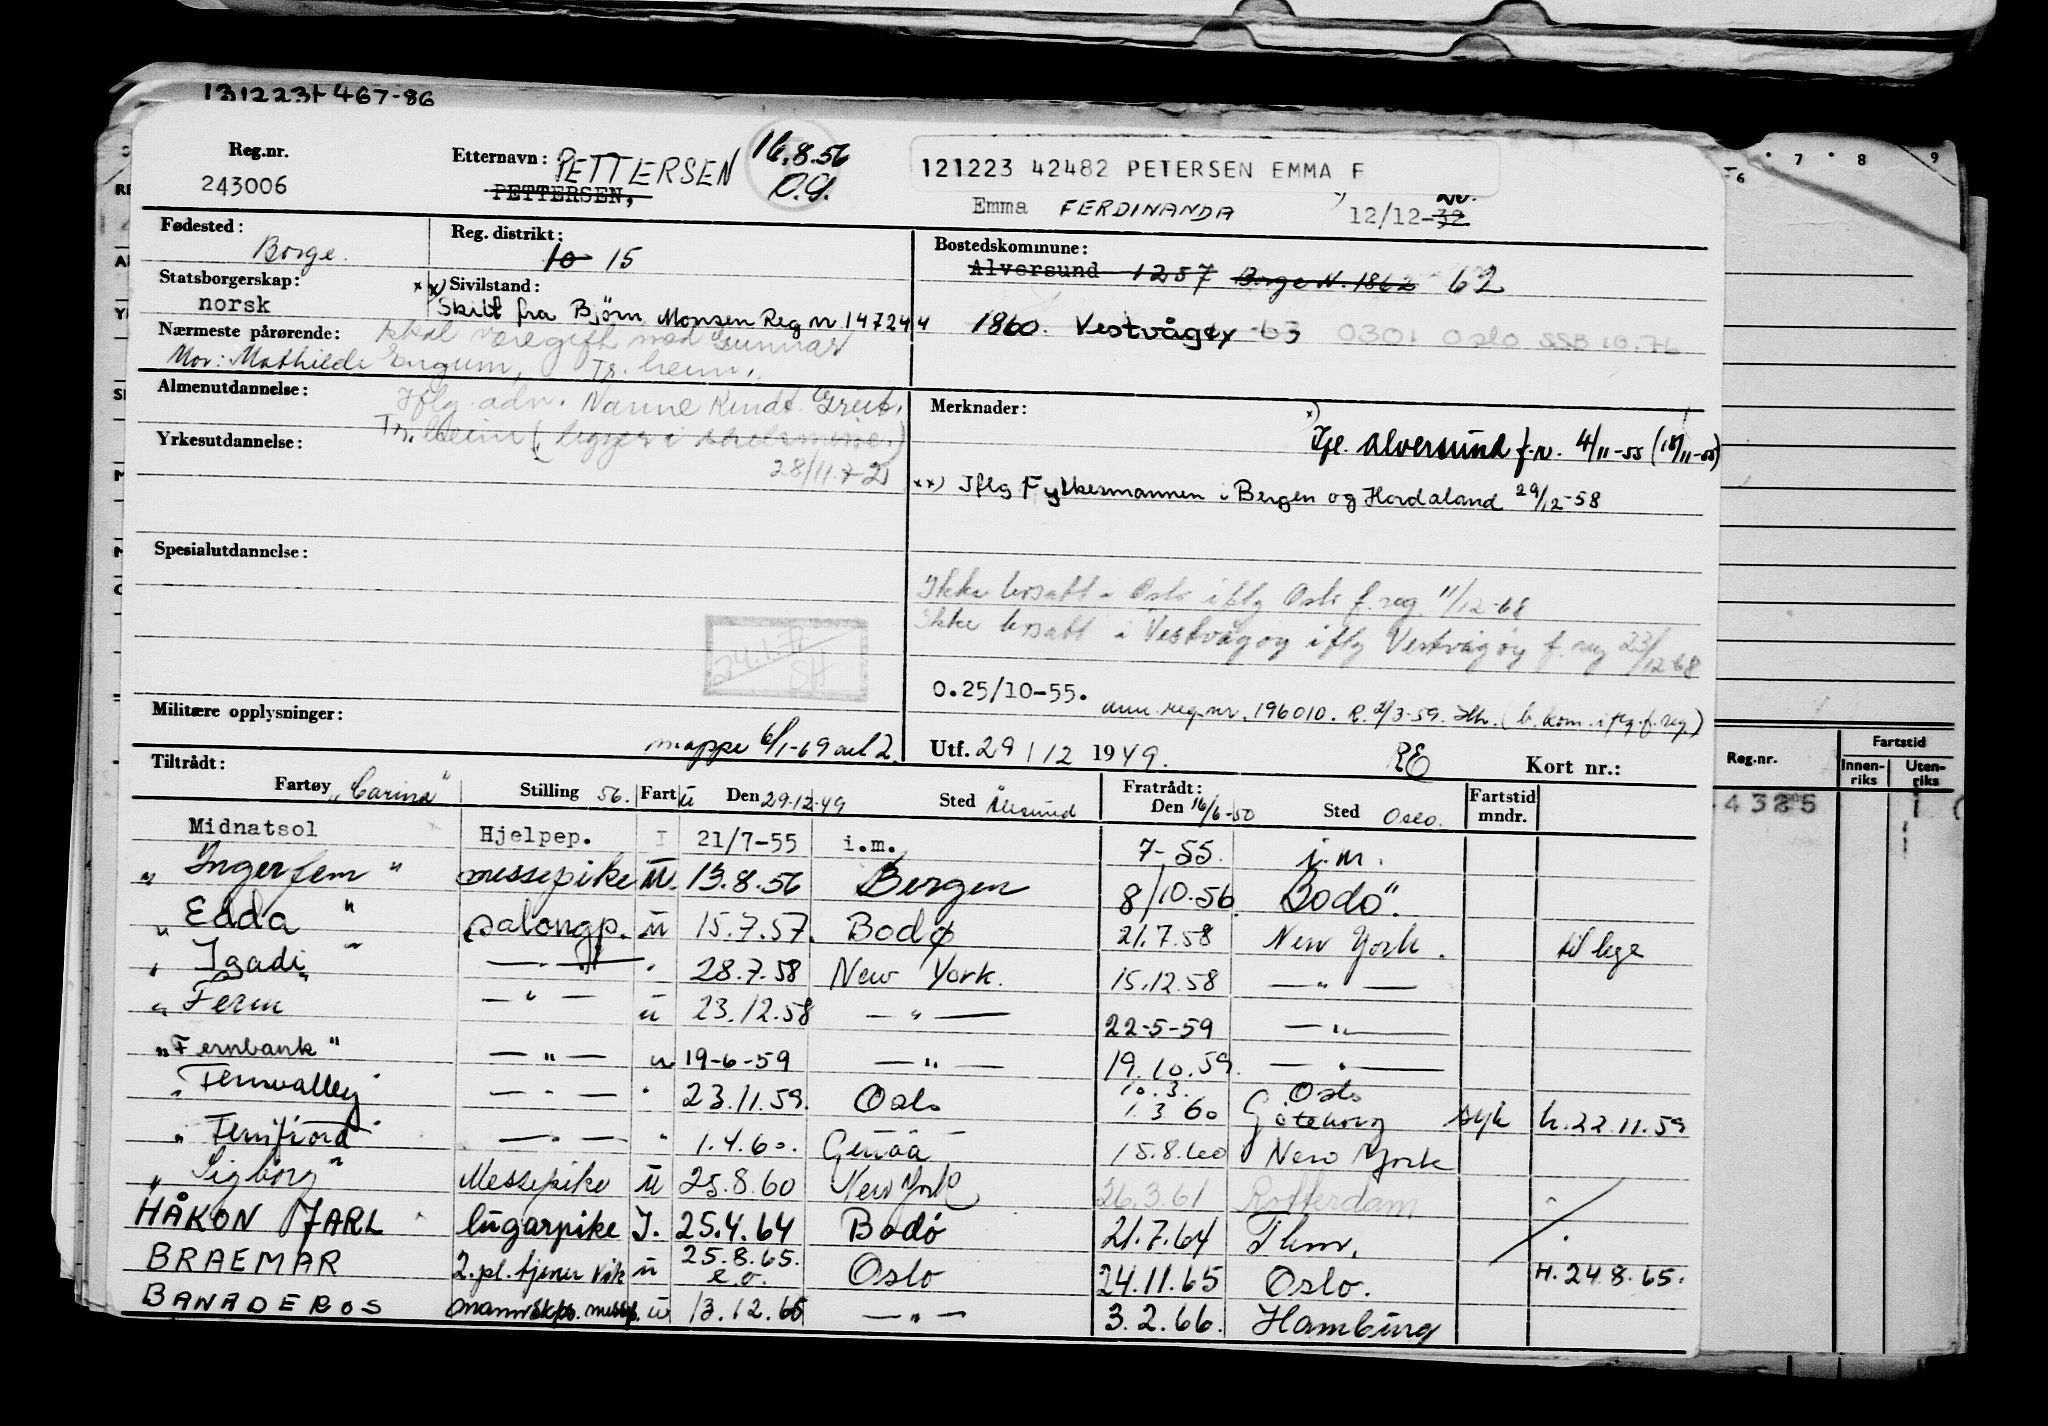 131223+467-86
Reg.nr. Etternavn: PETTERSEN 16.8.56 121223 42482 PETERSEN EMMA F
243006 PETTERSEN, O.G. Emma FERDINANDA 12/12-32
Fødested: Reg. distrikt: Bostedskommune:
Borge. 10 15 Alversund 1257 Borge N. 1862 62
Statsborgerskap: xx) Sivilstand:
norsk Skilt fra Bjørn Monsen Reg nr 147244 1860. Vestvågøy -63 0301 Oslo SSB 10.76
Nærmeste pårørende: skal være gift med Gunnar
Mor: Mathilde Engum, Tr.heim.
Almenutdannelse: Iflg. adv. Nanne Kindt Greit, Merknader:
Yrkesutdannelse: Tr.heim (ligger i skilsmisse.) x) Ifl. Alversund f.r. 4/11-55 (18/11-55)
28/11.72 xx) Iflg Fylkesmannen i Bergen og Hordaland 29/12-58
Spesialutdannelse:
Ikke bosatt i Oslo iflg Oslo f.reg 11/12-68
Ikke bosatt i Vestvågøy iflg Vestvågøy f.reg 23/12-68
SH
O.25/10-55. ann. reg.nr. 196010. R. 2/3-59. (b. kom. iflg. f.reg.)
Militære opplysninger: mappe 6/1-69 avl 2. Utf. 29/12 1949. RE Kort nr.:
Tiltrådt: Fratrådt: Fartstid
Fartøy "Carina" Stilling 56. Fart u Den 29.12.49 Sted Ålesund Den 16/6-50 Sted Oslo. mndr.
Midnatsol Hjelpep. I 21/7-55 i.m. 7-55. i.m.
" Ingerfem " messepike u. 13.8.56 Bergen 8/10.56. Bodø".
" Edda " salongp. u 15.7.57. Bodø 21.7.58 New York. til lege
" Igadi " — " — " 28.7.58 New York. 15.12.58 — " —
" Ferm " — " — u 23.12.58 — " — 22-5-59 — " —
"Fernbank" — " — u 19-6-59 — " — 19.10.59. — " —
" Fernvalley " — " — " 23.11.59. Oslo 10.3. Oslo
1.3 60 Göteborg syk h.22.11.59
" Fernfiord " — " — " 1.4.60. Genoa 15.8.60 New York
" Sigborg " Messepike u 25.8.60 New York 26.3.61 Rotterdam
HÅKON JARL lugarpike I. 25.4.64 Bodø 21.7.64 Thm.
BRAEMAR 2.pl.tjener vik u 25.8.65. e.o. Oslo 24.11.65 Oslo. H.24.8.65.
BANADEROS mannskps. messep. u 13.12.65 — " — 3.2.66. Hamburg
7 8 9
6
Reg.nr. Fartstid
Innenriks Utenriks
4385